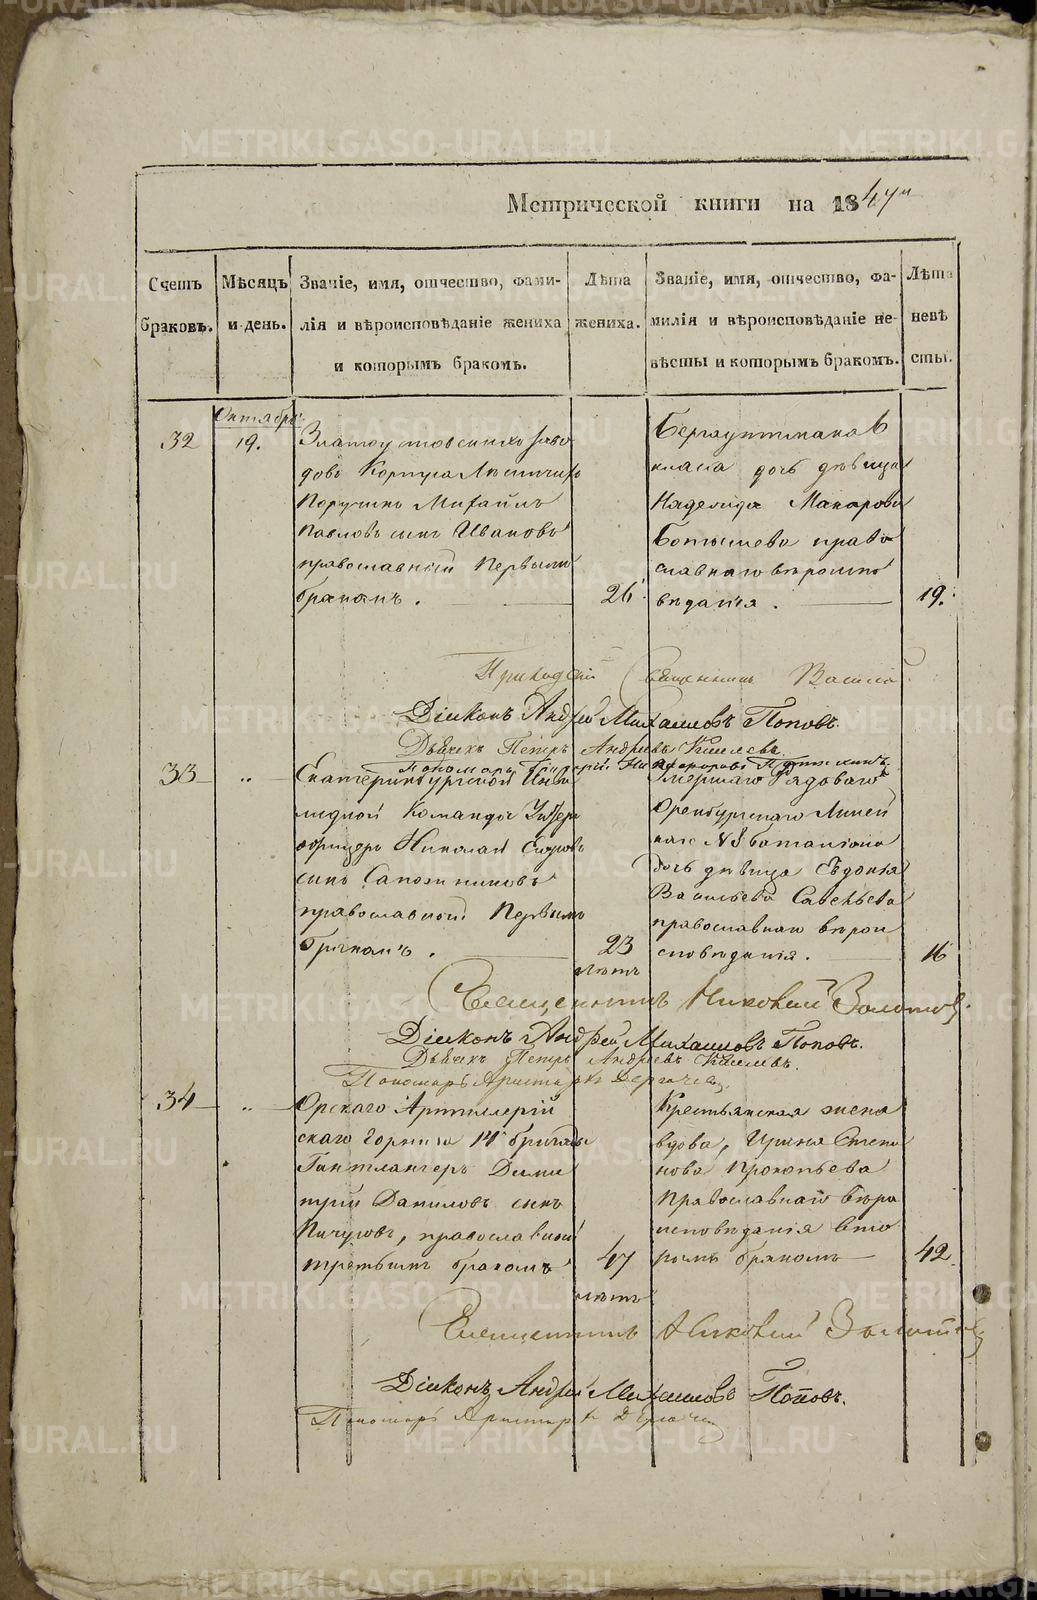 Метрической книги на 1847й
Счетъ браковъ.
Мѣсяцъ и день.
Званіе, имя, отчество, фами-
лія и вѣроисповѣданіе жениха
и которымъ бракомъ.
Лѣта жениха.
Званіе, имя, отчество, фа-
милія и вѣроисповѣданіе не-
вѣсты и которымъ бракомъ.
Лѣта невѣ сты.
32
Октября
19.
Златоустовскихъ заво
довъ Корпуса Лѣсничихъ
Поручикъ Михаилъ
Павловъ сынъ Ивановъ
православный первымъ
бракомъ.
26
класа дочь дѣвица
Надежда Макарова
право
славнаго вѣроиспо
вѣданія.
19.
Приходскій Священникъ Василій
Діяконъ Андрей Михаиловъ Поповъ
Дьячекъ Петръ Андреевъ Киселевъ
Пономарь
33
Екатеринбургской Инва
лидной Команды Унтеръ
офицеръ Николай Егоровъ
сынъ Сапожниковъ
православной Первымъ
бракомъ.
23
лѣтъ
Умершаго Рядоваго
Оренбургскаго Линей
наго №8 баталіона
дочь дѣвица Евдокія
Васильева Савельева
православнаго вѣрои
сповѣданія.
16
Священникъ Никовый Золотовъ.
Діяконъ Андрей Михаиловъ Поповъ.
Дьячекъ Петръ Андреевъ Киселевъ.
Пономарь Аристархъ Дергачевъ
34
Орскаго Артиллерій
скаго Горнизо 14 бригады
Гантлангеръ Дими
трій Даниловъ сынъ
Пичуговъ, православной
третьимъ бракомъ
47
лѣтъ
Крестьянская жена
вдова, Ирина Степа
нова Прокопьева
Православнаго вѣро
исповѣданія вто
рымъ бракомъ
42.
Священникъ Никовый Золотовъ
Діяконъ Андрей Михаиловъ Поповъ.
Пономарь Аристархъ Дергачевъ
METRIKI.GASO-URAL.RU